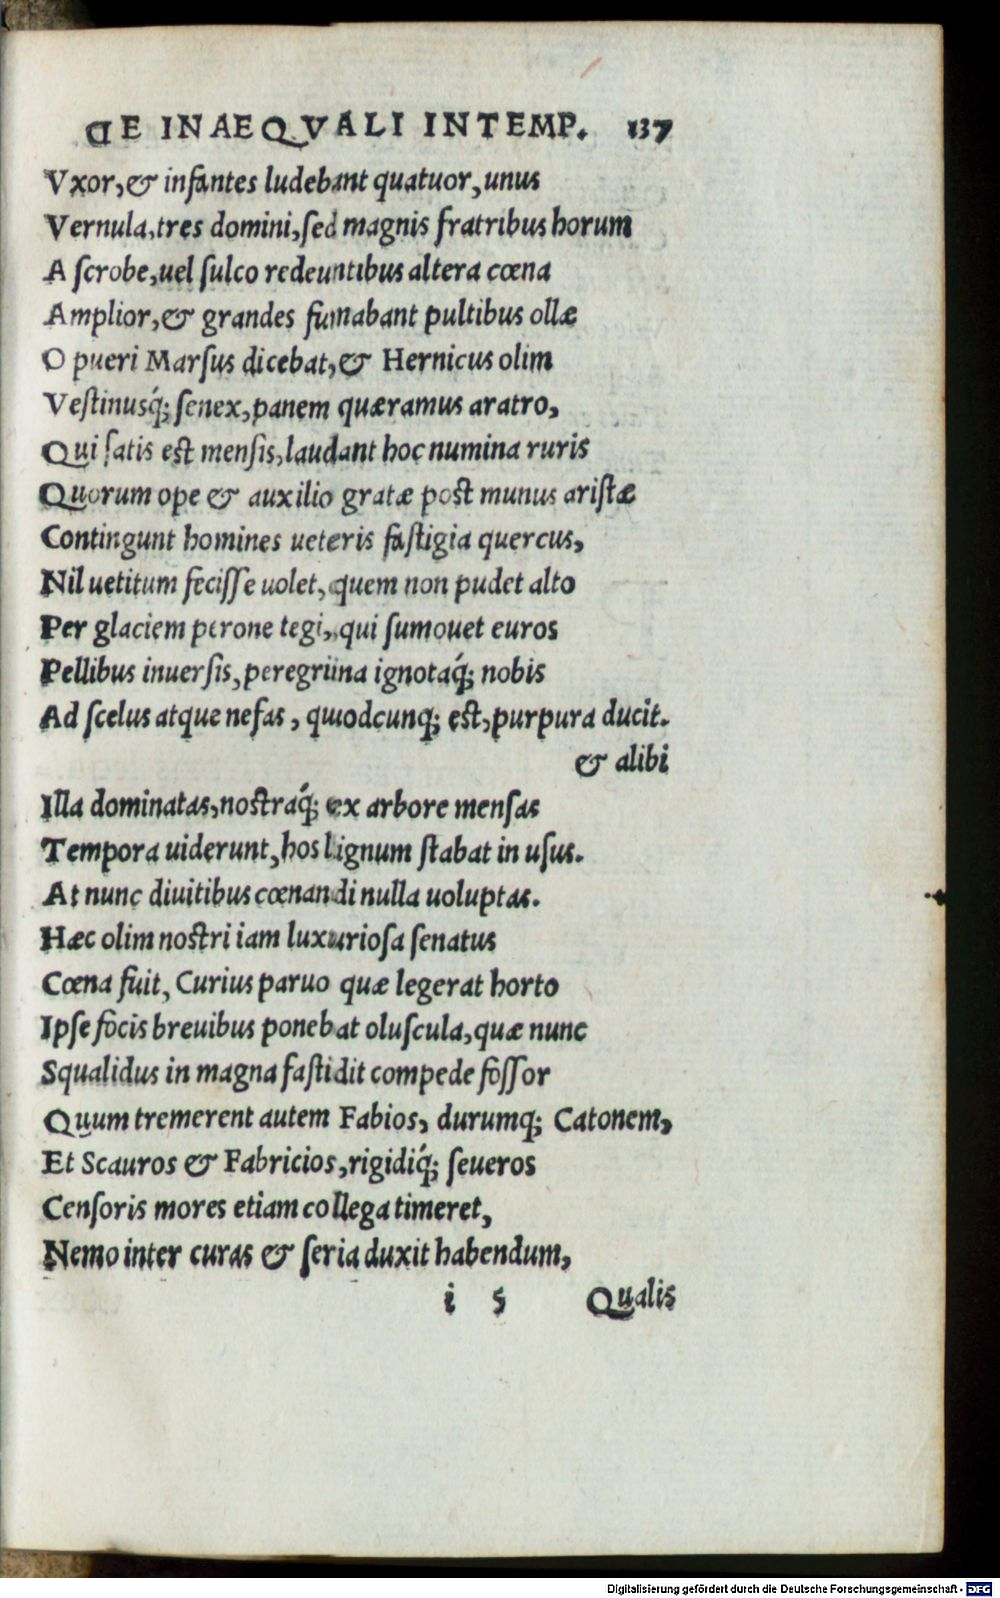 DE INAEQVALI INTEMP. 137
Vxor,& infantes ludebant quatuor,unus
Vernula,tres domini,ſed magnis fratribus horum
A ſcrobe,uel ſulco redeuntibus altera cœna
Amplior,& grandes fumabant pultibus ollæ
O pueri Marſus dicebat,& Hernicus olim
Veſtinusq́; ſenex,panem quæramus aratro,
Qui ſatis eſt menſis,laudant hoc numina ruris
Quorum ope & auxilio gratæ poſt munus ariſtæ
Contingunt homines ueteris faſtigia quercus,
Nil uetitum feciſſe uolet, quem non pudet alto
Per glaciem perone tegi, qui ſumouet euros
Pellibus inuerſis,peregriina ignotaq́; nobis
Ad ſcelus atque nefas, quodcunq; eſt,purpura ducit.
& alibi
Illa dominatas,noſtraq́; ex arbore menſas
Tempora uiderunt,hos lignum ſtabat in uſus.
At nunc diuitibus cœnandi nulla uoluptas.
Hæc olim noſtri iam luxurioſa ſenatus
Cœna fuit, Curius paruo quæ legerat horto
Ipſe focis breuibus ponebat oluſcula,quæ nunc
Squalidus in magna faſtidit compede foſſor
Quum tremerent autem Fabios, durumq; Catonem,
Et Scauros & Fabricios,rigidiq́; ſeueros
Cenſoris mores etiam collega timeret,
Nemo inter curas & ſeria duxit habendum,
i 5 Qualis
Digitalisierung gefördert durch die Deutsche Forschungsgemeinschaft - DFG